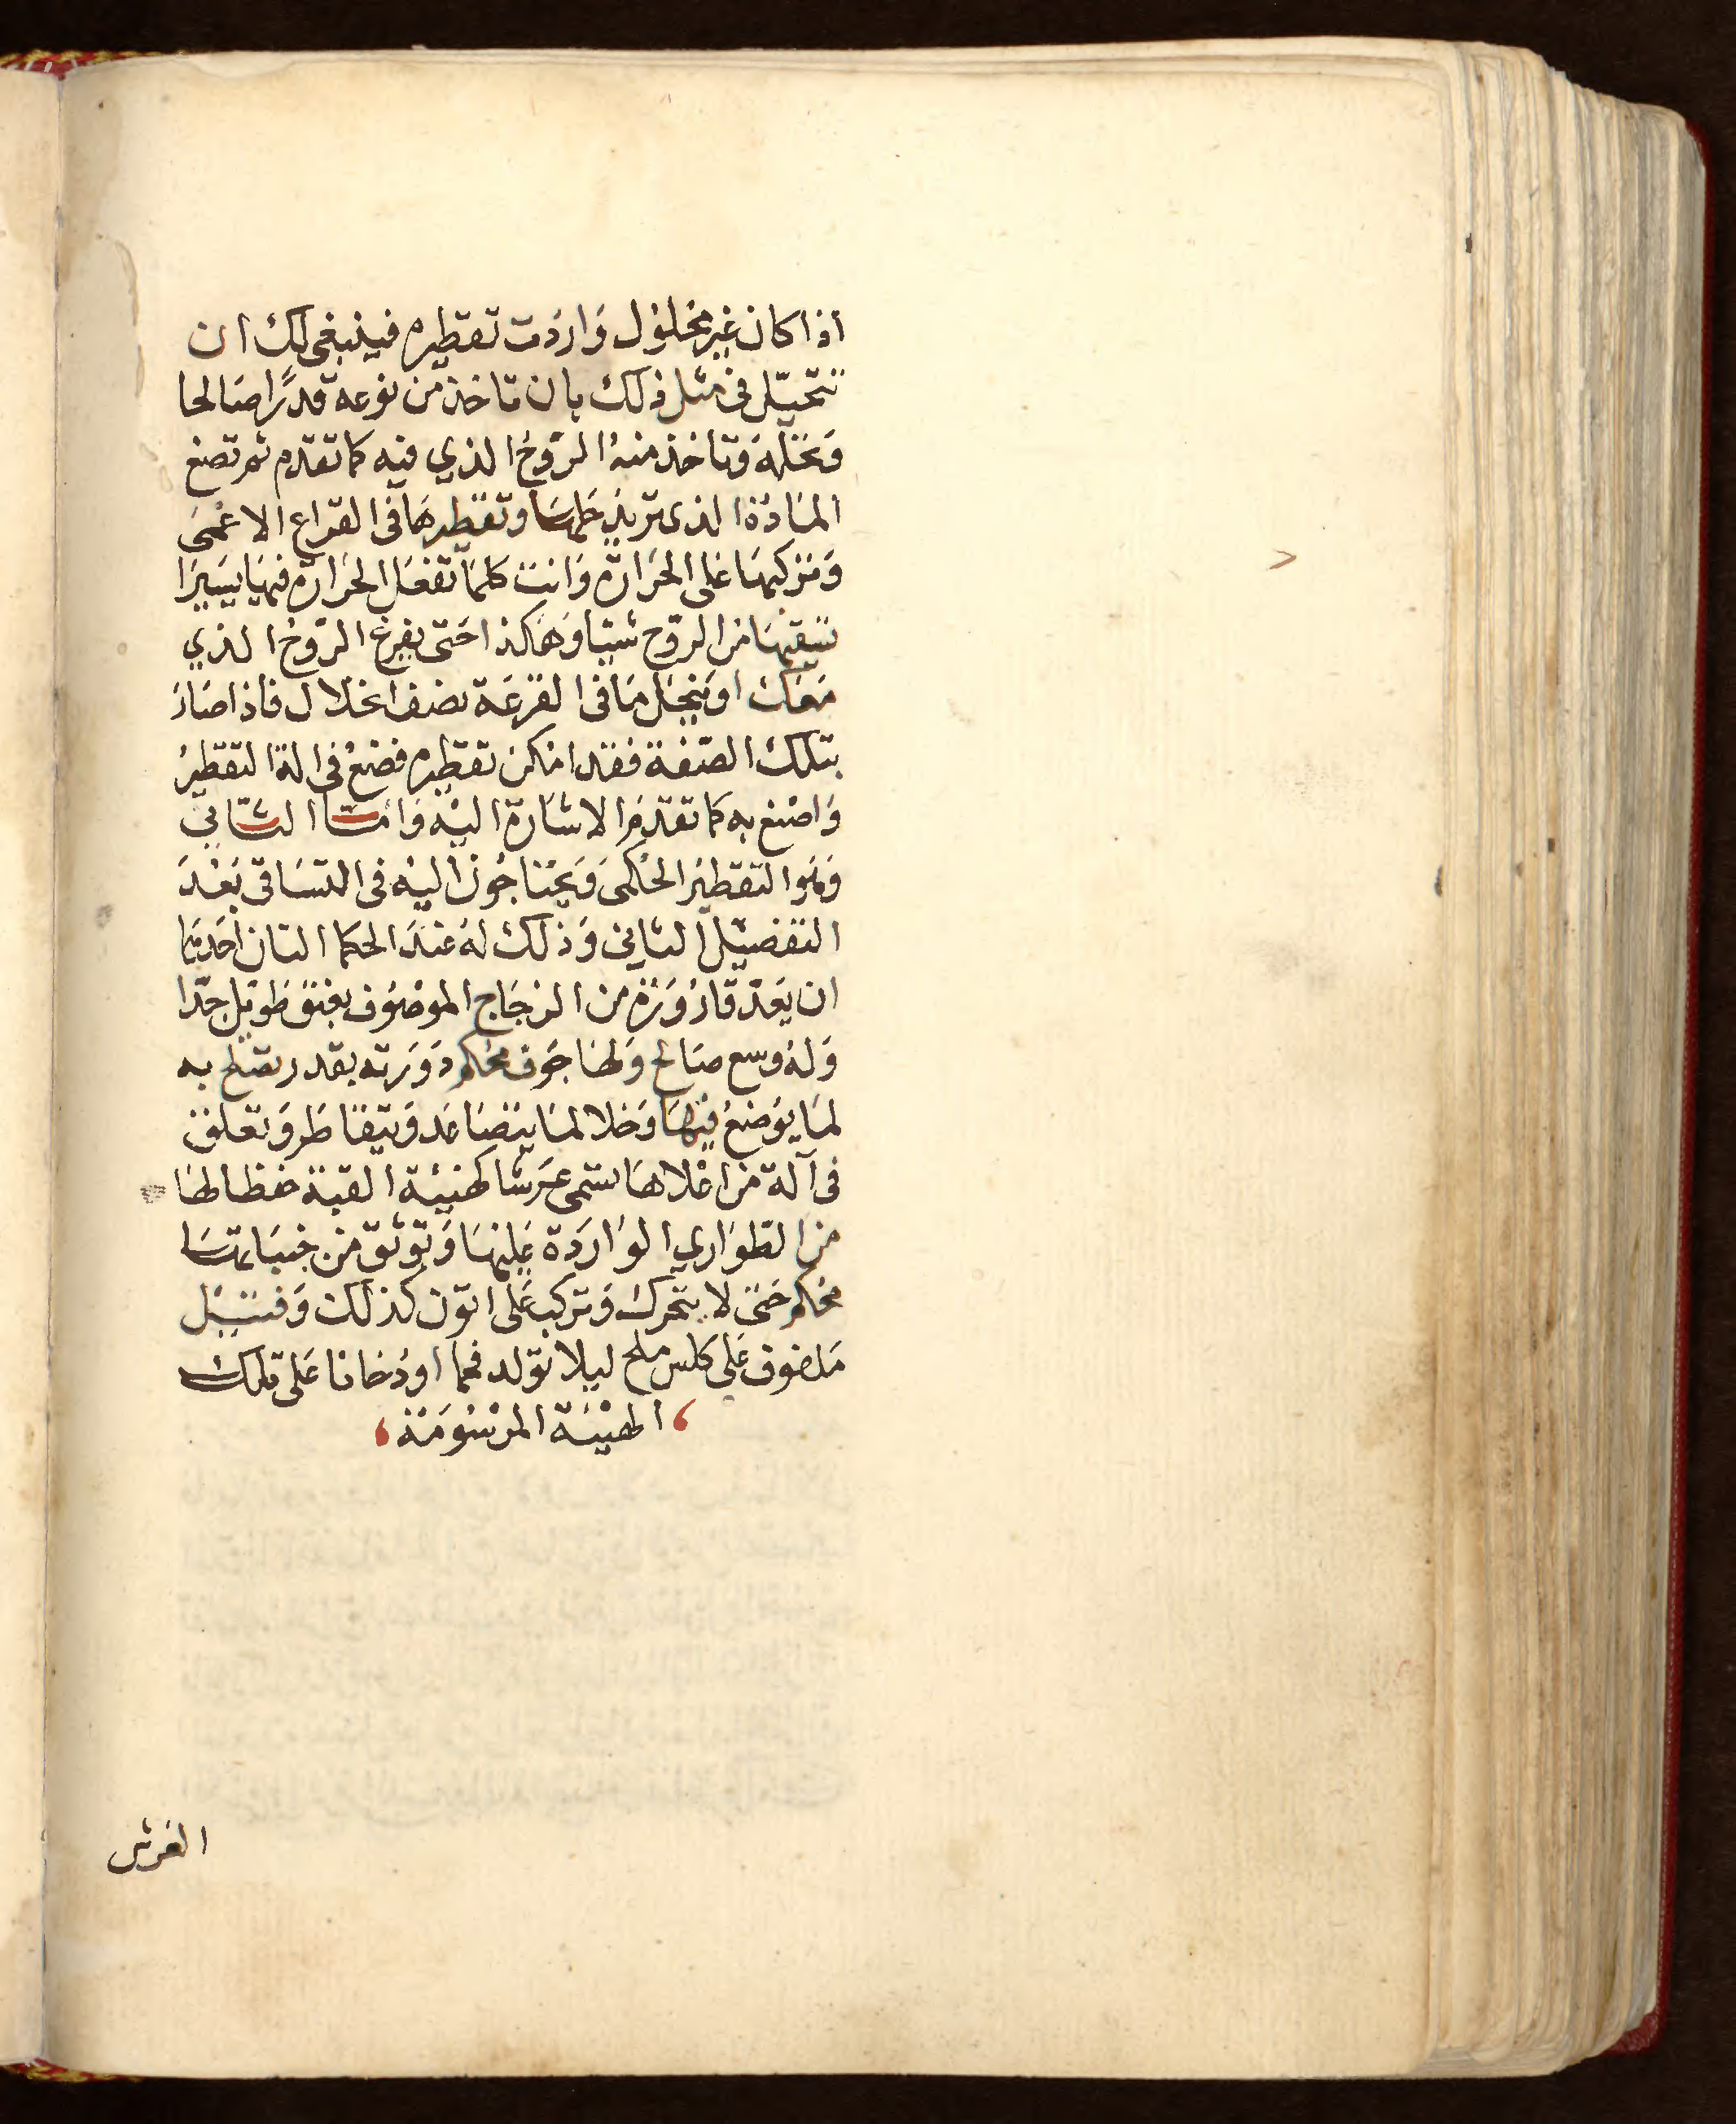 اذا كان غير محلول واردت تقطيره فينبغى لك ان
تتحيّل فى مثل ذلك بان تاخذ من نوعه قدرًا صالحا
وتحلّه وتاخذ منه الروح الذي فيه كما تقدم ثم تضع
المادة الذى تريد حلها وتقطيرها فى القراع الاعمى
وتركبها على الحرارة وانت كلما تفعل الحرارة فيها يسيرا
تسقيها من الروح شيا وهاكذا حتى يفرغ الروح الذي
معك او ينحل ما فى القرعة نصف انحلال فاذا صار
بتلك الصفة فقد امكن تقطيره فضع فى الة التقطير
واصنع به كما تقدم الاشارة اليه واما الثاني
وهو التقطير الحكمى ويحتاجون اليه فى التساقى بعد
التفصيل الثاني وذلك له عند الحكما التان احدهما
ان يعد قارورة من الزجاج الموصوف بعنق طويل جدا
وله وسع صالح ولها جوف محكم دورته بقدر تصلح به
لما يوضع فيها وخلا لما يتصاعد ويتقاطر وتعلق
فى آلة من اعلاها تسمى عرشا كهيئة القبة حفظا لها
من الطواري الواردة عليها وتوثق من جنباتها
محكم حتى لا يتحرك وتركب على اتون كذلك وفتيل
ملفوف على كلس ملح ليلا تولد فحما او دخانا على تلك
الهيئة المرسومة
العرش